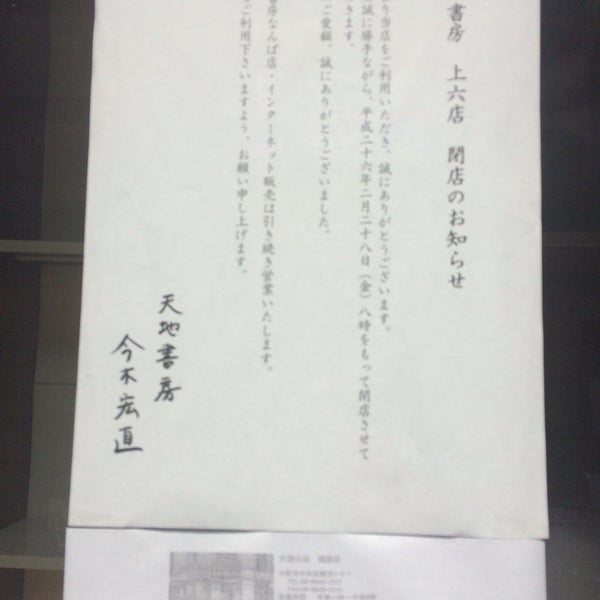 書房 上六店 閉店のお知らせ
り当店をご利用いただき、誠にありがとうございます。
誠に勝手ながら、平成二十六年二月二十八日(金)八時をもって閉店させて
きます。
ご愛顧、誠にありがとうございました。
書房なんば店・インターネット販売は引き続き営業いたします。
ご利用下さいますよう、お願い申し上げます。
天地書房
今木宏直